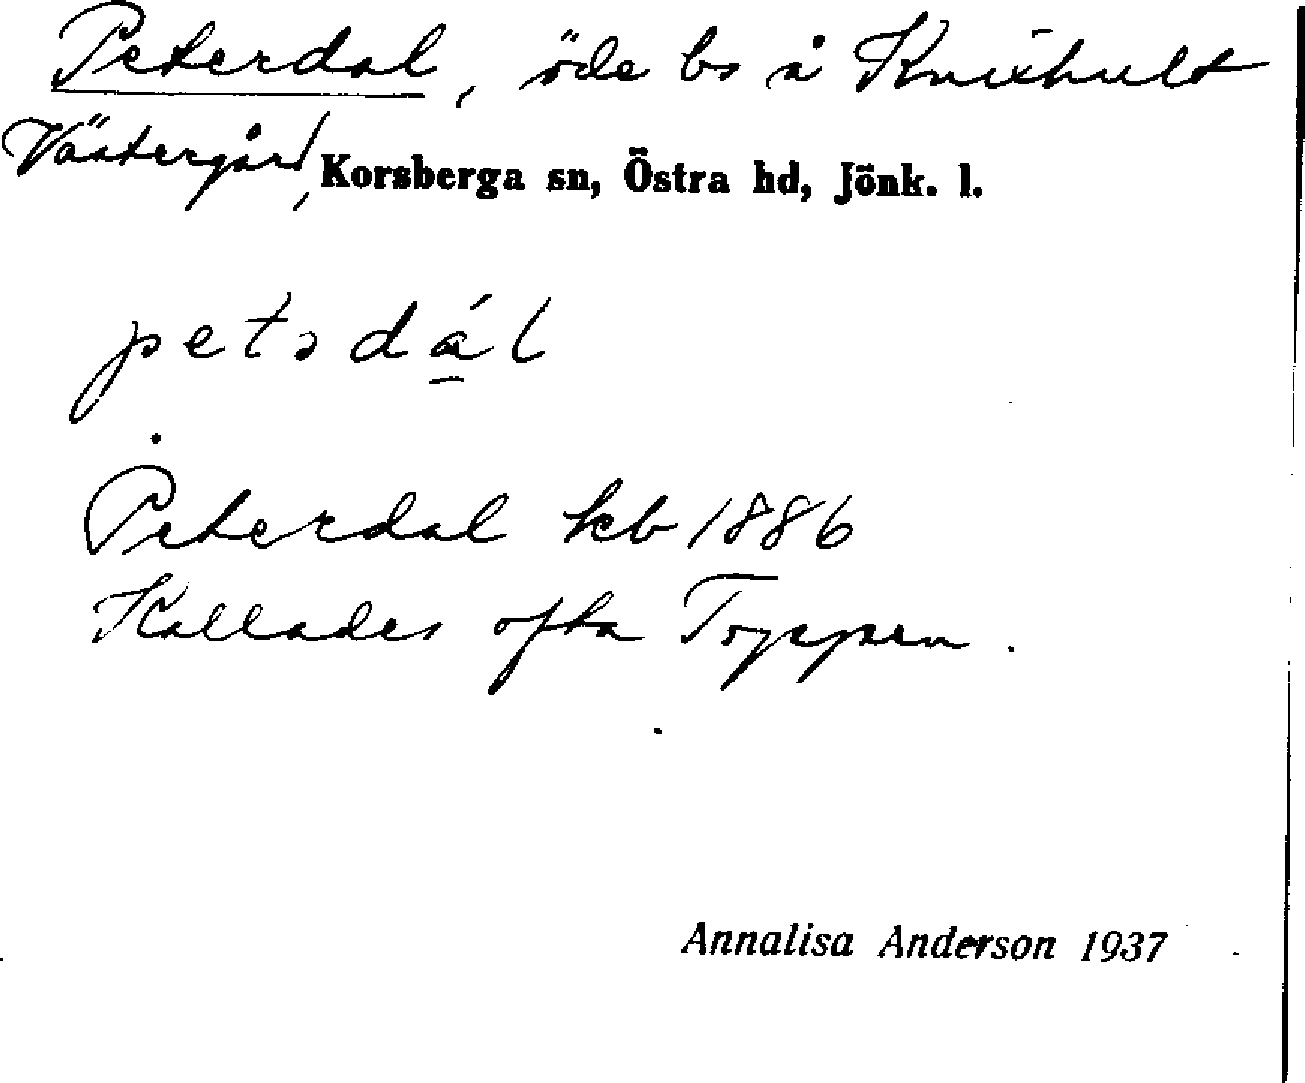 Peterdal, öde bs å Knixhult
Västergård, Korsberga sn, Östra hd, Jönk. l.
petsdál
Peterdal kb 1886
Kallades ofta Toppen.
Annalisa Anderson 1937